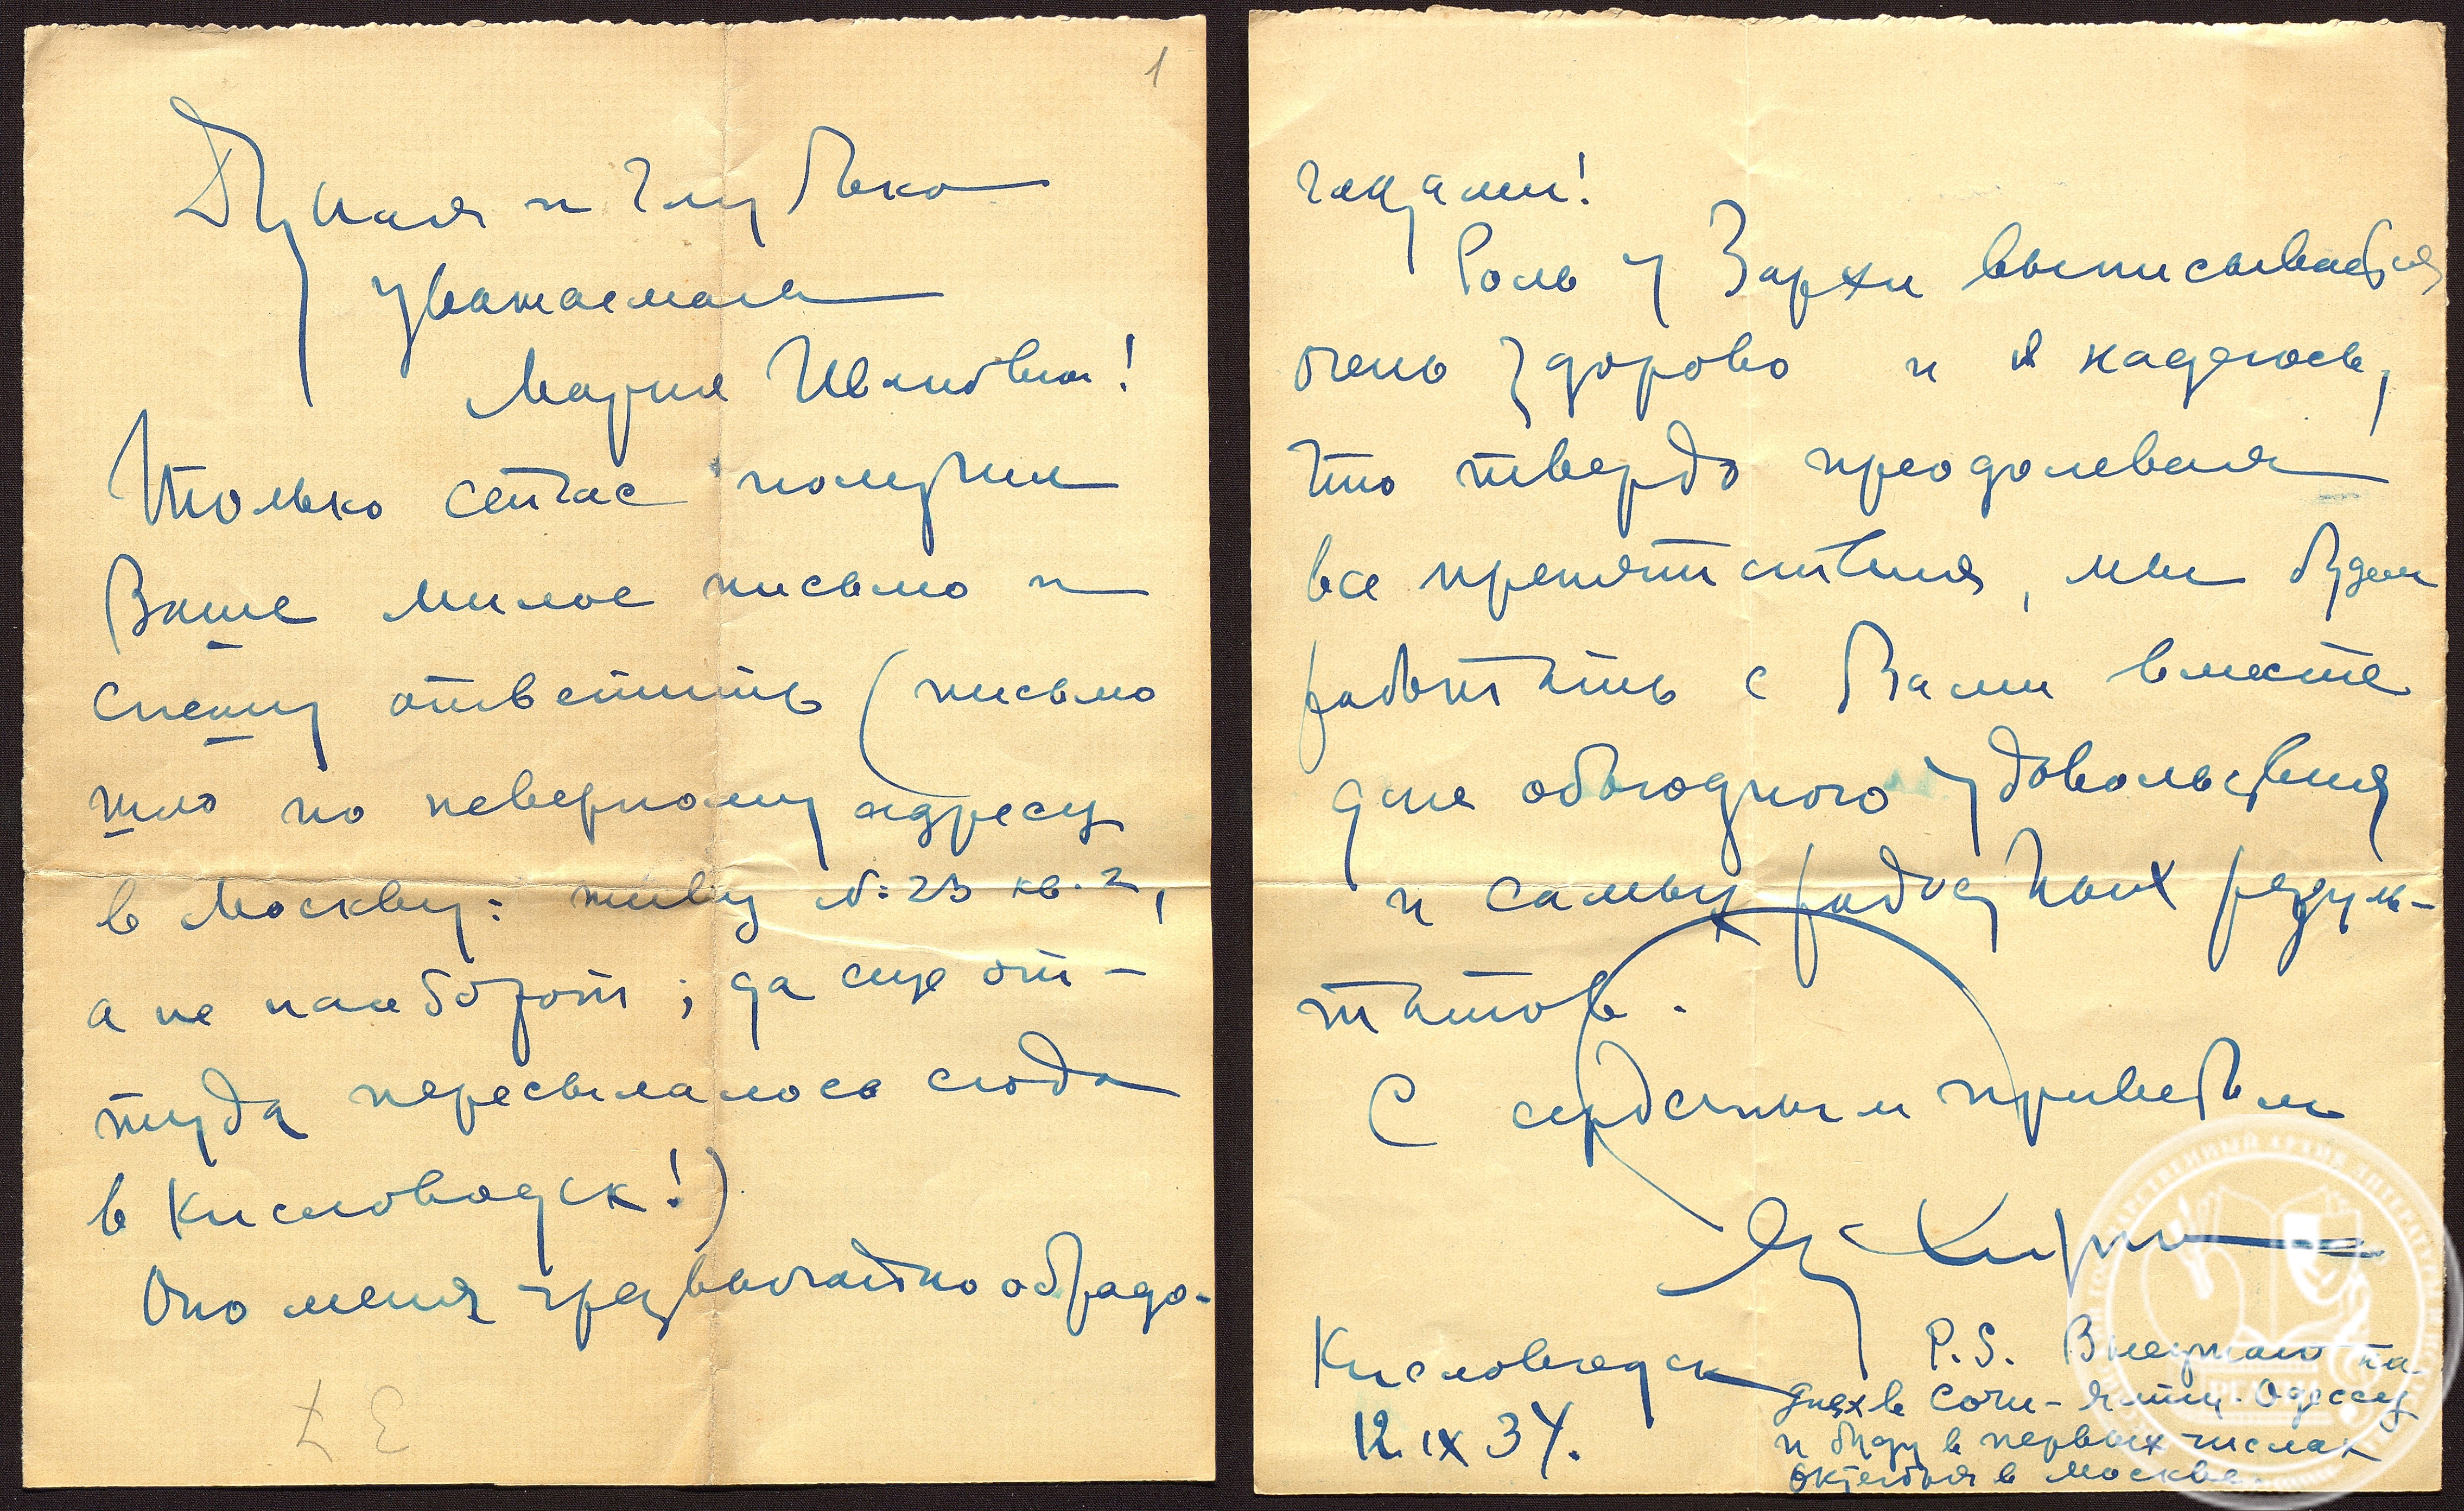 1
и глубоко
уважаемая
Мария Ивановна!
Только сейчас получил
Ваше милое письмо и
спешу ответить (письмо
шло по неверному адресу
в Москву: живу д. 23 кв. 2,
а не наоборот; да еще от-
туда пересылалось сюда
в Кисловодск!)
Оно меня чрезвычайно обрадо-
Роль у Зархи выписывается
очень здорово и я надеюсь,
что твердо преодолевая
все препятствия, мы будем
работать с Вами вместе
для обоюдного удовольствия
и самых радостных резуль-
татов.
С сердечным приветом
Кисловодск
12. IX 34.
P.S. на
днях в Сочи - Ялту - Одессу
и буду в первых числах
октября в Москве.